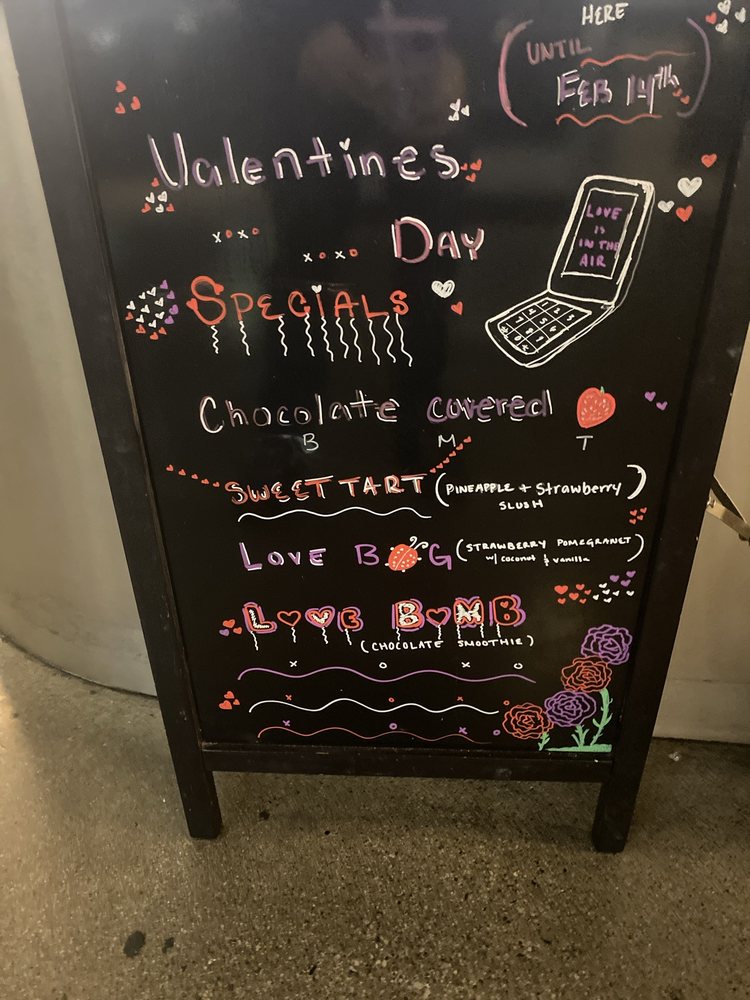 HERE
(UNTIL
FEB 14th)
Valentines
xoxo
xoxo
DAY
LOVE
IS
IN THE
AIR
SPECIALS
Chocolate covered
B M T
SWEET TART (PINEAPPLE + Strawberry
SLUSH)
LOVE B G (STRAWBERRY POMEGRANET
w/ coconut & vanilla)
LOVE BOMB
(CHOCOLATE SMOOTHIE)
x o x o
x o x o
x o x o